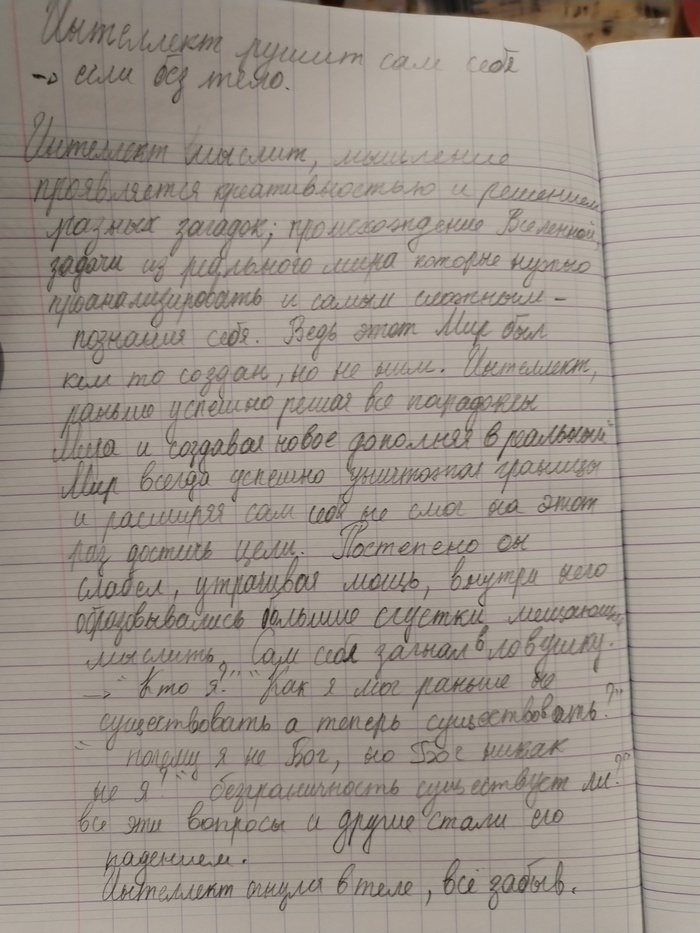 Интеллект рушит сам себя
→ если без тело.
Интеллект мыслит, мышление
проявляется креативностью и решением
разных загадок; происхождение Вселенной,
задачи из реального мира которые нужно
проанализировать и самым сложным -
познания себя. Ведь этот Мир был
кем то создан, но не ним. Интеллект,
раньше успешно решая все парадоксы
Мира и создавая новое дополняя в реальный
Мир всегда успешно уничтожал границы
и расширяя сам себя не смог на этот
раз достичь цели. Постепено он
слабел, утрачивая мощь, внутри него
образовывались большие сгустки мешающие
мыслить. Сам себя загнал в ловушку.
→ "Кто я?" "Как я мог раньше не
существовать а теперь существовать?"
" почему я не Бог, но Бог никак
не я?" безграничность существует ли?"
все эти вопросы и другие стали его
падением.
Интеллект в теле, всё забыв.